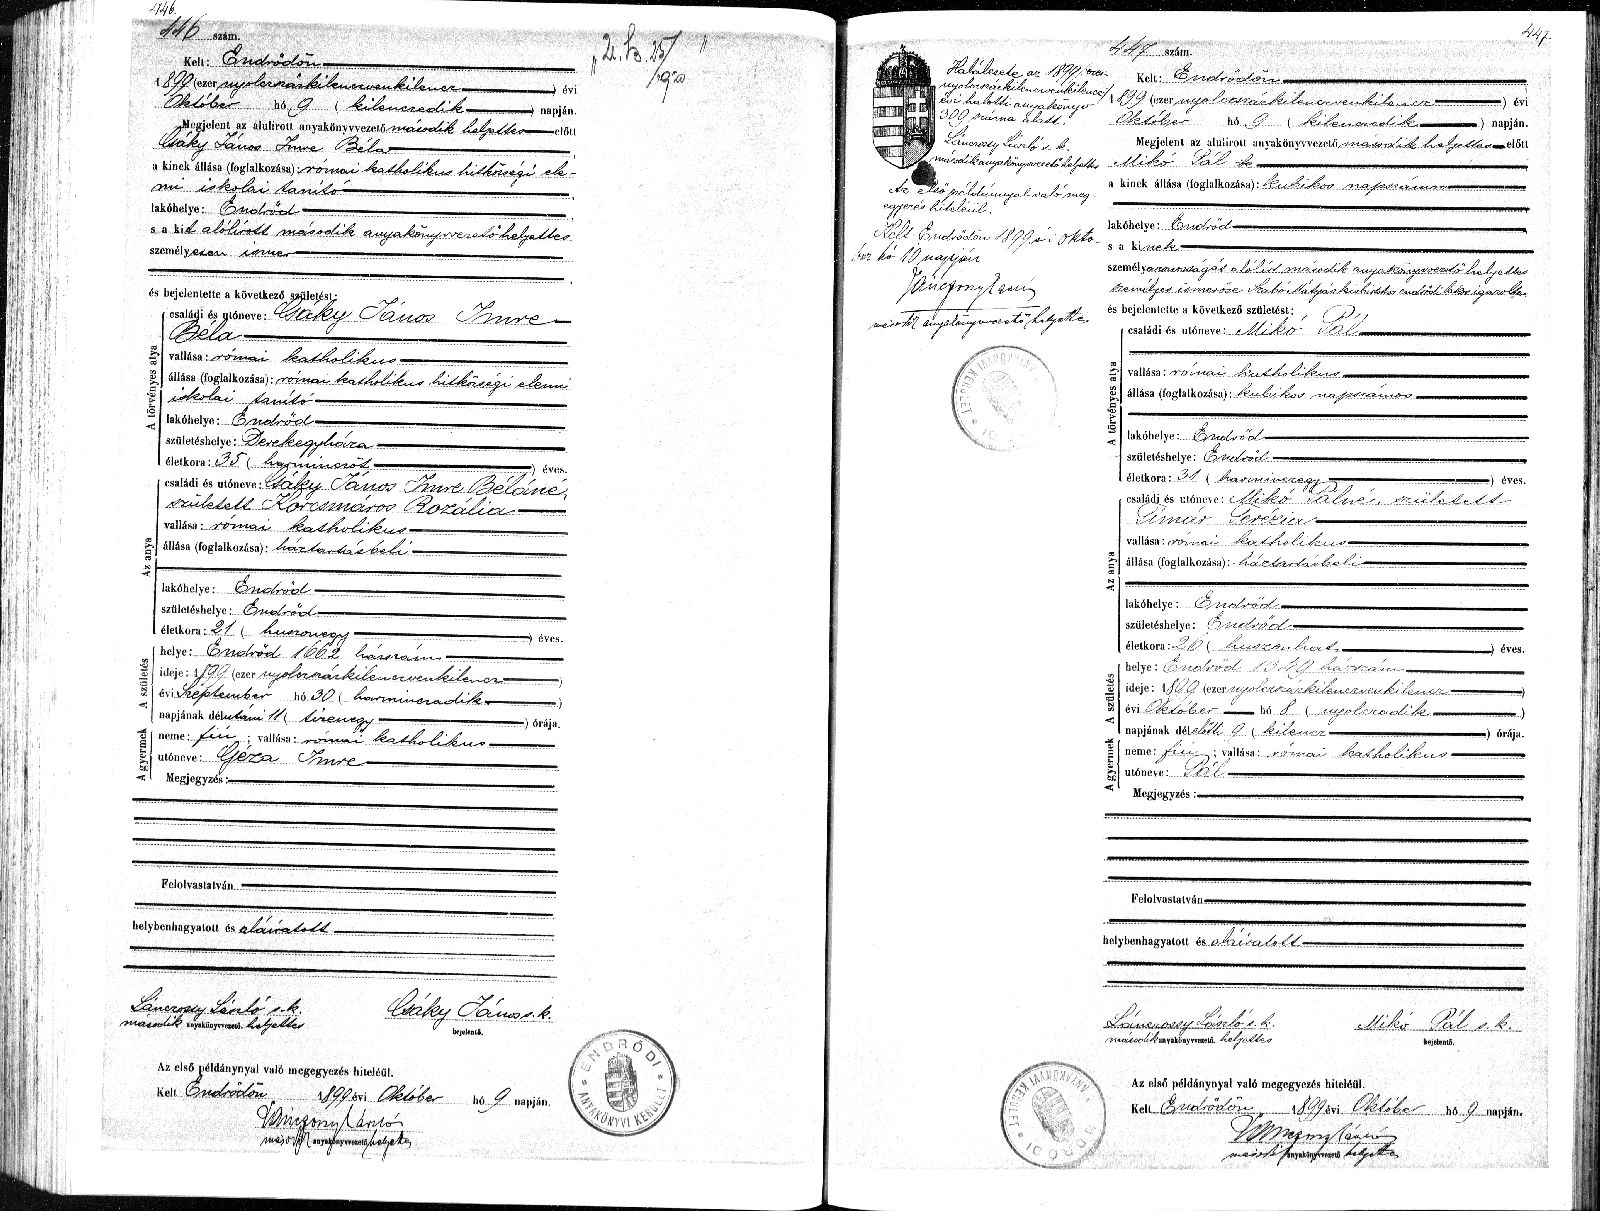 446.
446 szám.
Kelt: Endrődön
1899 (ezer nyolcszázkilenczvenkilencz) évi
Október hó 9 (kilenczedik) napján.
Megjelent az alulirott anyakönyvvezető második helyettes előtt
Csáky János Imre Béla
a kinek állása (foglalkozása): római katholikus hitközségi ele-
mi iskolai tanító
lakóhelye: Endrőd
s a kit alólirott második anyakönyvvezető helyettes
személyesen ismer
és bejelentette a következő születést:
A törvényes atya
családi és utóneve: Csáky János Imre
Béla
vallása: római katholikus
állása (foglalkozása): római katholikus hitközségi elemi
iskolai tanító
lakóhelye: Endrőd
születéshelye: Derekegyháza
életkora: 35 (harminczöt) éves.
Az anya
családi és utóneve: Csáky János Imre Béláné,
született Korcsmáros Rozália
vallása: római katholikus
állása (foglalkozása): háztartásbeli
lakóhelye: Endrőd
születéshelye: Endrőd
életkora: 21 (huszonegy) éves.
A születés
helye: Endrőd 1662 házszám
ideje: 1899 (ezer nyolcszázkilenczvenkilencz)
évi Szeptember hó 30 (harminczadik)
napjának délutáni 11 (tizenegy) órája.
A gyermek
neme: fiu; vallása: római katholikus
utóneve: Géza Imre
Megjegyzés:
Felolvastatván
helybenhagyatott és aláiratott
Lánczossy László s. k.
második anyakönyvvezető helyettes
Csáky János s. k.
bejelentő.
Az első példánynyal való megegyezés hiteléül.
Kelt Endrődön 1899 évi Október hó 9 napján.
Lánczossy László
második anyakönyvvezető helyettes
ENDRŐDI
ANYAKÖNYVI KERÜLET
Halálesete az 1899 (ezer-
nyolcszázkilenczvenkilencz)
évi halotti anyakönyv
300 száma alatt.
Lánczossy László s. k.
második anyakönyvvezető helyettes
Az első példánynyal való meg-
egyezés hiteléül.
Kelt Endrődön 1899 évi okto-
ber hó 10 napján
Lánczossy László
második anyakönyvvezető helyettes
447.
447 szám.
Kelt: Endrődön
1899 (ezer nyolcszázkilenczvenkilencz) évi
Október hó 9 (kilenczedik) napján.
Megjelent az alulirott anyakönyvvezető második helyettes előtt
Mikó Pál
a kinek állása (foglalkozása): kubikos napszámos
lakóhelye: Endrőd
s a kinek
személyazonosságát alólirt második anyakönyvvezető helyettes
személyes ismerőse Szabó Mátyás endrődi lakos igazolta
és bejelentette a következő születést:
A törvényes atya
családi és utóneve: Mikó Pál
vallása: római katholikus
állása (foglalkozása): kubikos napszámos
lakóhelye: Endrőd
születéshelye: Endrőd
életkora: 31 (harminczegy) éves.
Az anya
családi és utóneve: Mikó Pálné, született
Timár Terézia
vallása: római katholikus
állása (foglalkozása): háztartásbeli
lakóhelye: Endrőd
születéshelye: Endrőd
életkora: 26 (huszonhat) éves.
A születés
helye: Endrőd 1049 házszám
ideje: 1899 (ezer nyolcszázkilenczvenkilencz)
évi Október hó 8 (nyolczadik)
napjának délelőtti 9 (kilencz) órája.
A gyermek
neme: fiu; vallása: római katholikus
utóneve: Pál
Megjegyzés:
Felolvastatván
helybenhagyatott és aláiratott
Lánczossy László s. k.
második anyakönyvvezető helyettes
Mikó Pál s. k.
bejelentő.
Az első példánynyal való megegyezés hiteléül.
Kelt Endrődön 1899 évi Október hó 9 napján.
Lánczossy László
második anyakönyvvezető helyettes
ENDRŐDI
ANYAKÖNYVI KERÜLET